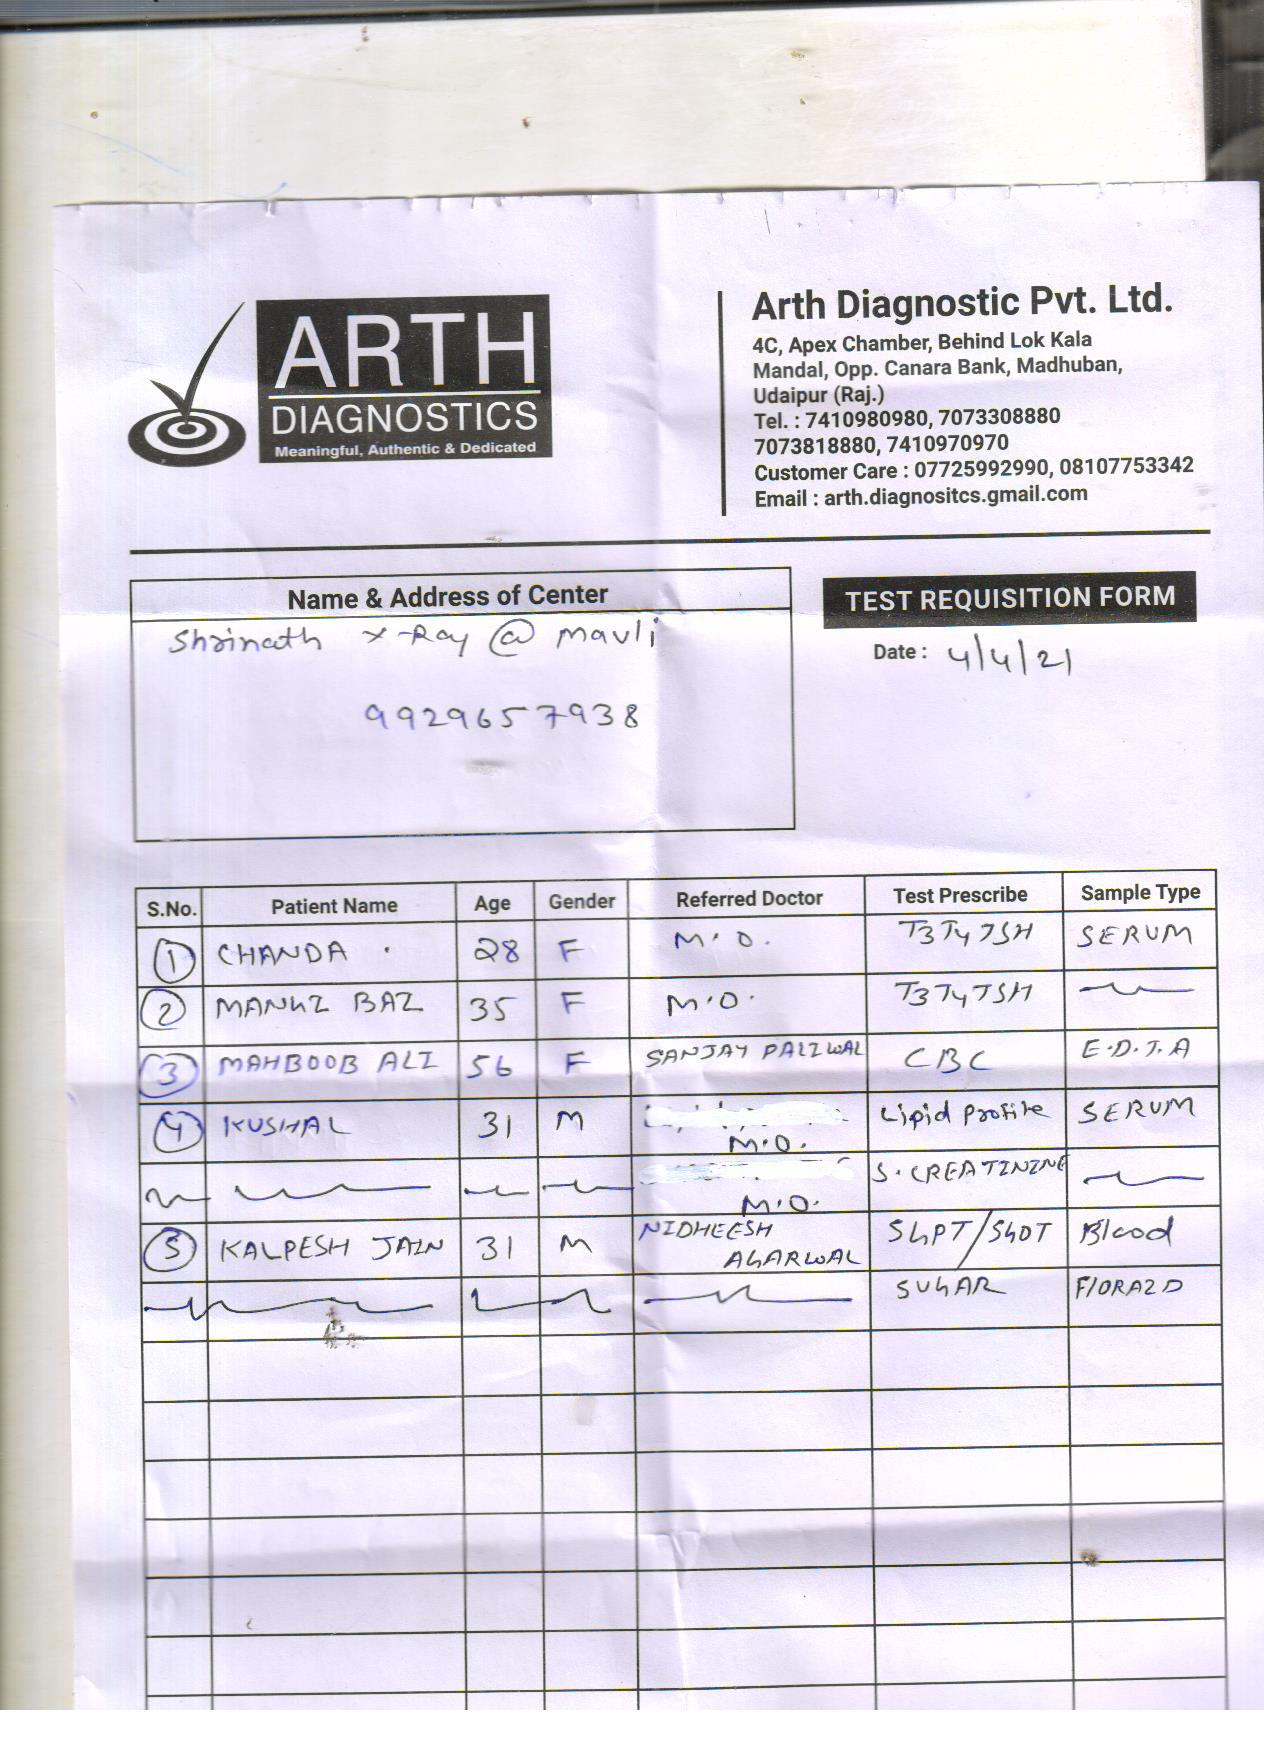 ARTH
DIAGNOSTICS
Meaningful, Authentic & Dedicated
Arth Diagnostic Pvt. Ltd.
4C, Apex Chamber, Behind Lok Kala
Mandal, Opp. Canara Bank, Madhuban,
Udaipur (Raj.)
Tel. : 7410980980, 7073308880
7073818880, 7410970970
Customer Care : 07725992990, 08107753342
Email : arth.diagnositcs.gmail.com
Name & Address of Center
Shrinath X-Ray @ Mavli
9929657938
TEST REQUISITION FORM
Date : 4/4/21
S.No. Patient Name Age Gender Referred Doctor Test Prescribe Sample Type
1 CHANDA 28 F M.O. T3 T4 TSH SERUM
2 MANGI BAI 35 F M.O. T3 T4 TSH
3 MAHBOOB ALI 56 F SANJAY PALIWAL CBC E.D.T.A
4 KUSHAL 31 M M.O. Lipid Profile SERUM
M.O. S. CREATININE
5 KALPESH JAIN 31 M NIDHEESH AGARWAL SGPT/SGOT Blood
SUGAR F/ORAID